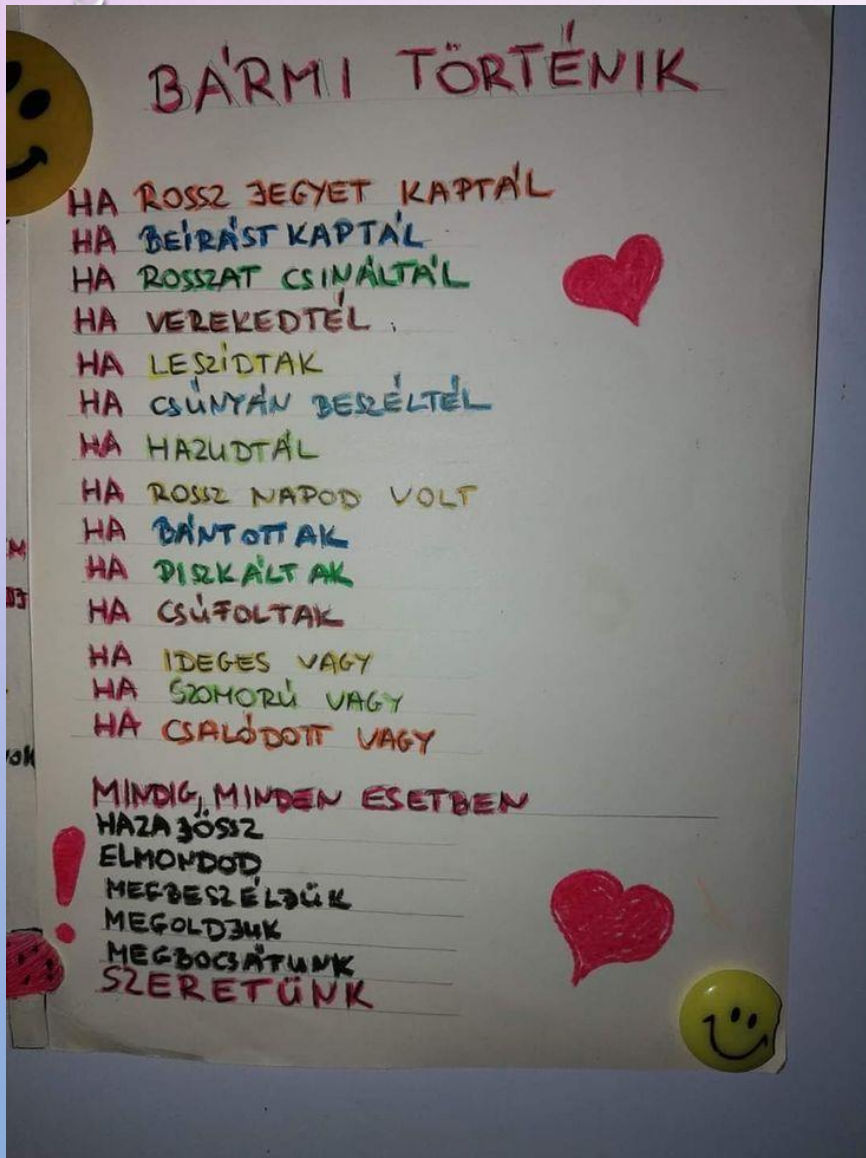 BÁRMI TÖRTÉNIK
HA ROSSZ JEGYET KAPTÁL
HA BEÍRÁST KAPTÁL
HA ROSSZAT CSINÁLTÁL
HA VEREKEDTÉL
HA LESZÍDTAK
HA CSÚNYÁN BESZÉLTÉL
HA HAZUDTÁL
HA ROSSZ NAPOD VOLT
HA BÁNTOTTAK
HA PISZKÁLTAK
HA CSÚFOLTAK
HA IDEGES VAGY
HA SZOMORÚ VAGY
HA CSALÓDOTT VAGY
MINDIG, MINDEN ESETBEN
HAZAJÖSSZ
ELMONDOD
MEGBESZÉLJÜK
MEGOLDJUK
MEGBOCSÁTUNK
SZERETÜNK